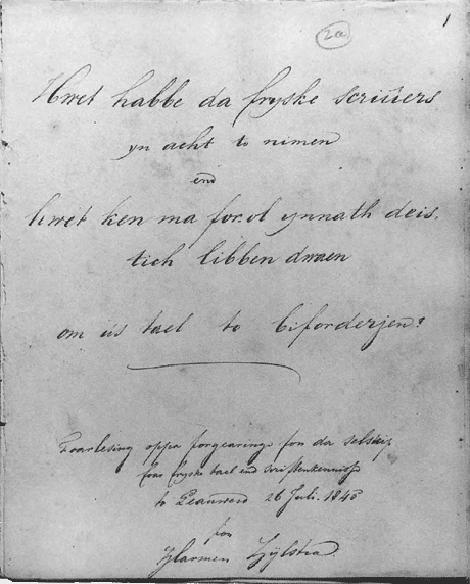 1
2a
Hwet habbe da fryske scriuers
yn acht to nimen
end
hwet ken ma forol ynnath deis-
lich libben dwaen
om us tael to biforderjen?
Foarlesing oppa forgearinge fon da selskip
foar fryske tael end
to Leauwerd 26 Juli. 1846
fon
Harmen Sijlstra